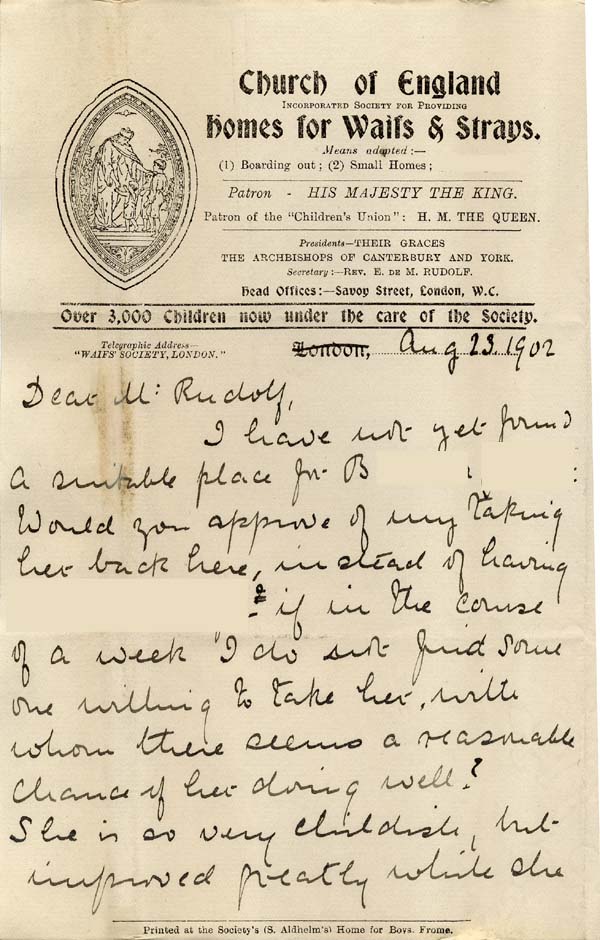 Church of England
INCORPORATED SOCIETY FOR PROVIDING
Homes for Waifs & Strays.
Means adopted:—
(1) Boarding out; (2) Small Homes;
Patron - HIS MAJESTY THE KING.
Patron of the "Children's Union": H. M. THE QUEEN.
Presidents—THEIR GRACES
THE ARCHBISHOPS OF CANTERBURY AND YORK.
Secretary:—REV. E. DE M. RUDOLF.
Head Offices:—Savoy Street, London, W.C.
Over 3,000 Children now under the care of the Society.
Telegraphic Address—
"WAIFS' SOCIETY, LONDON."
London, Aug 23. 1902
Dear Mr. Rudolf,
I have not yet found
a suitable place for B
Would you approve of my taking
her back here, instead of having
if in the course
of a week I do not find some
one willing to take her, with
whom there seems a reasonable
chance of her doing well?
She is so very childish, but
improved greatly while she
Printed at the Society's (S. Aldhelm's) Home for Boys, Frome.